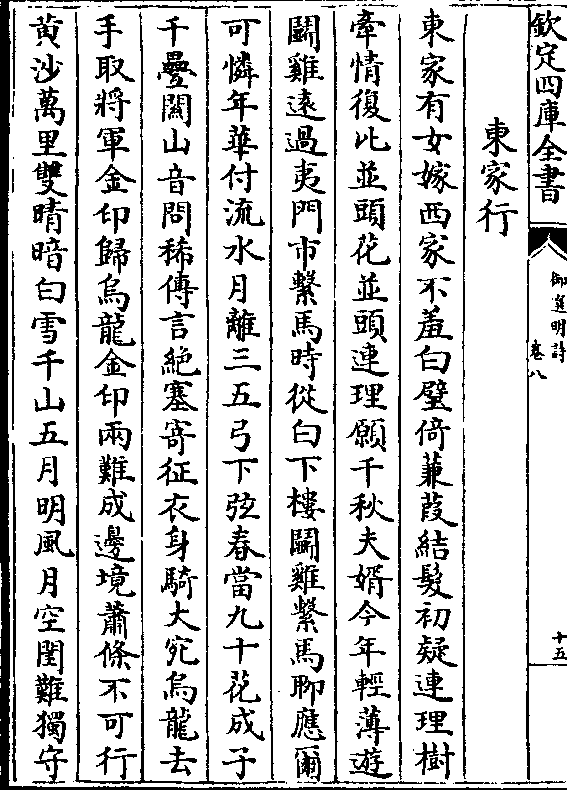 欽定四庫全書
御選明詩
卷八
十五
東家行
東家有女嫁西家不羞白璧倚蒹葭結髮初疑連理樹
牽情復比並頭花並頭連理願千秋夫婿今年輕薄遊
鬭雞遠過夷門市繫馬時從白下樓鬭雞繫馬聊應爾
可憐年華付流水月離三五弓下弦春當九十花成子
千疊關山音問稀傳言絕塞寄征衣身騎大宛烏龍去
手取將軍金印歸烏龍金印兩難成邊境蕭條不可行
黄沙萬里雙晴暗白雪千山五月明風月空閨難獨守